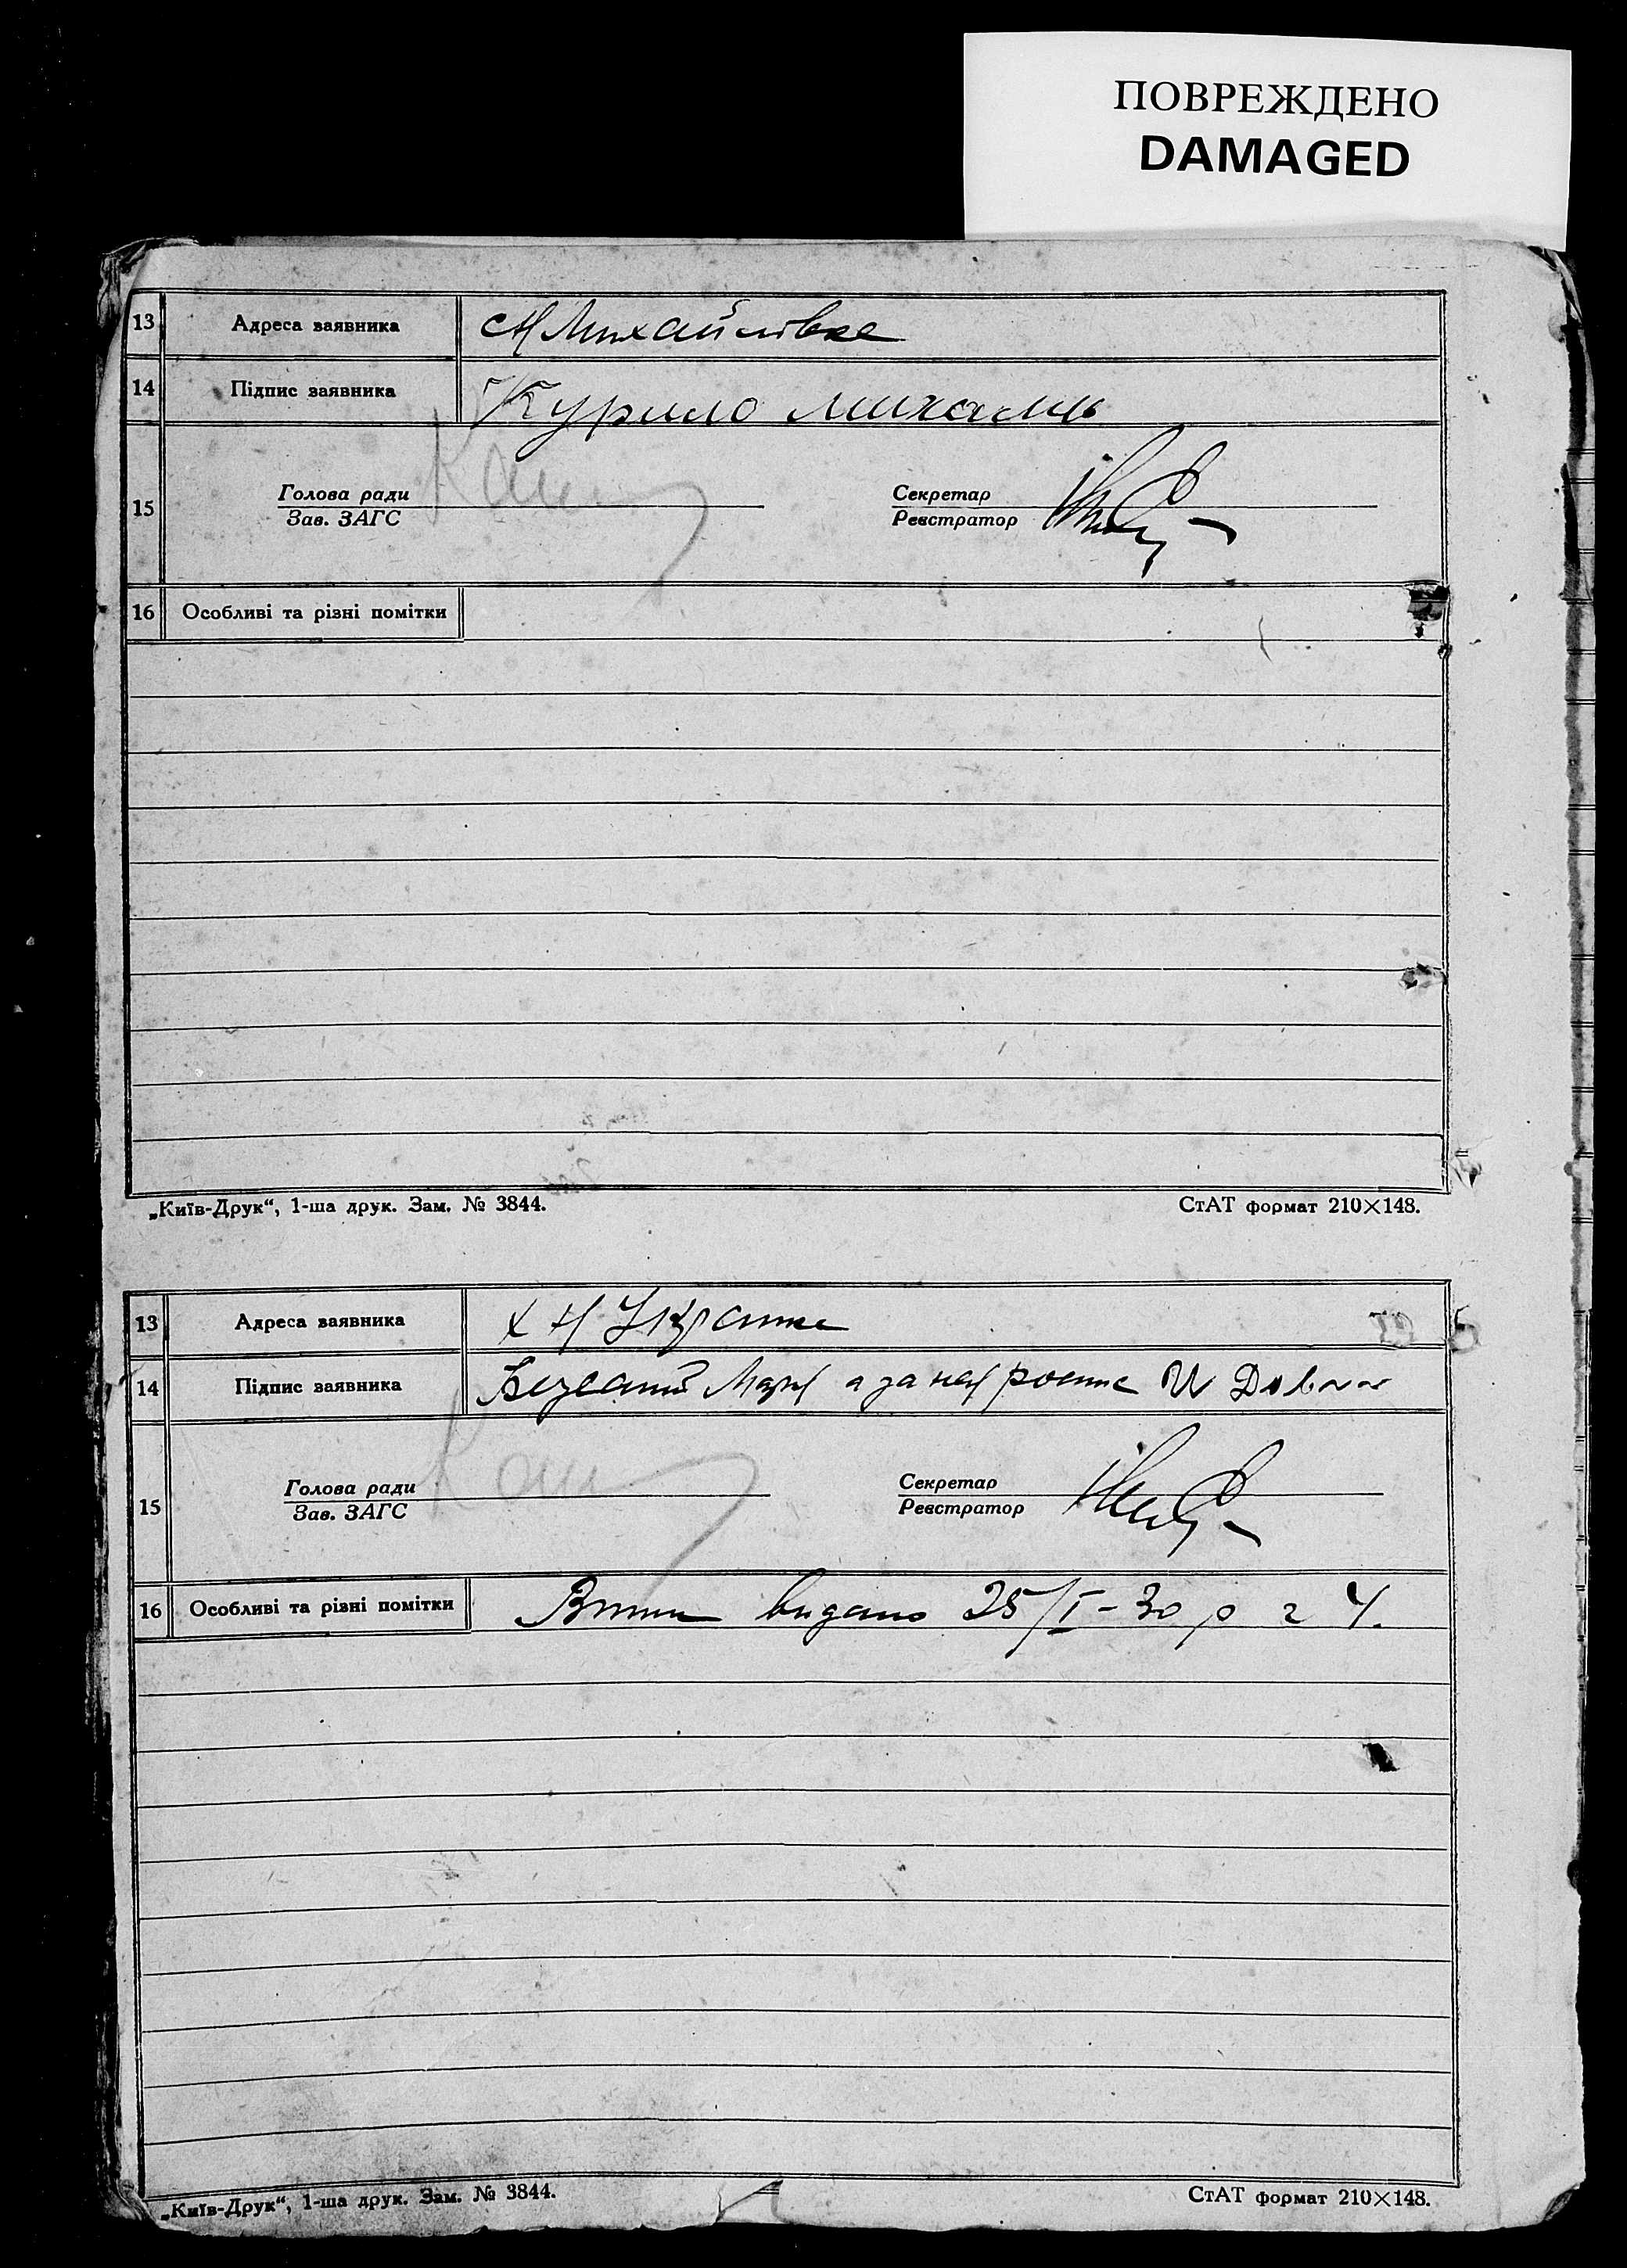 ПОВРЕЖДЕНО
DAMAGED
13 Адреса заявника Михайлівка
14 Підпис заявника Курило
Голова ради Секретар
15
Зав. ЗАГС Реєстратор
16 Особливі та різні помітки
„Київ-Друк“, 1-ша друк. Зам. № 3844. СтАТ формат 210×148.
13 Адреса заявника х Н Українка
14 Підпис заявника а за
Голова ради Секретар
15
Зав. ЗАГС Реєстратор
16 Особливі та різні помітки видано 25/I-30 р
„Київ-Друк“, 1-ша друк. Зам. № 3844. СтАТ формат 210×148.